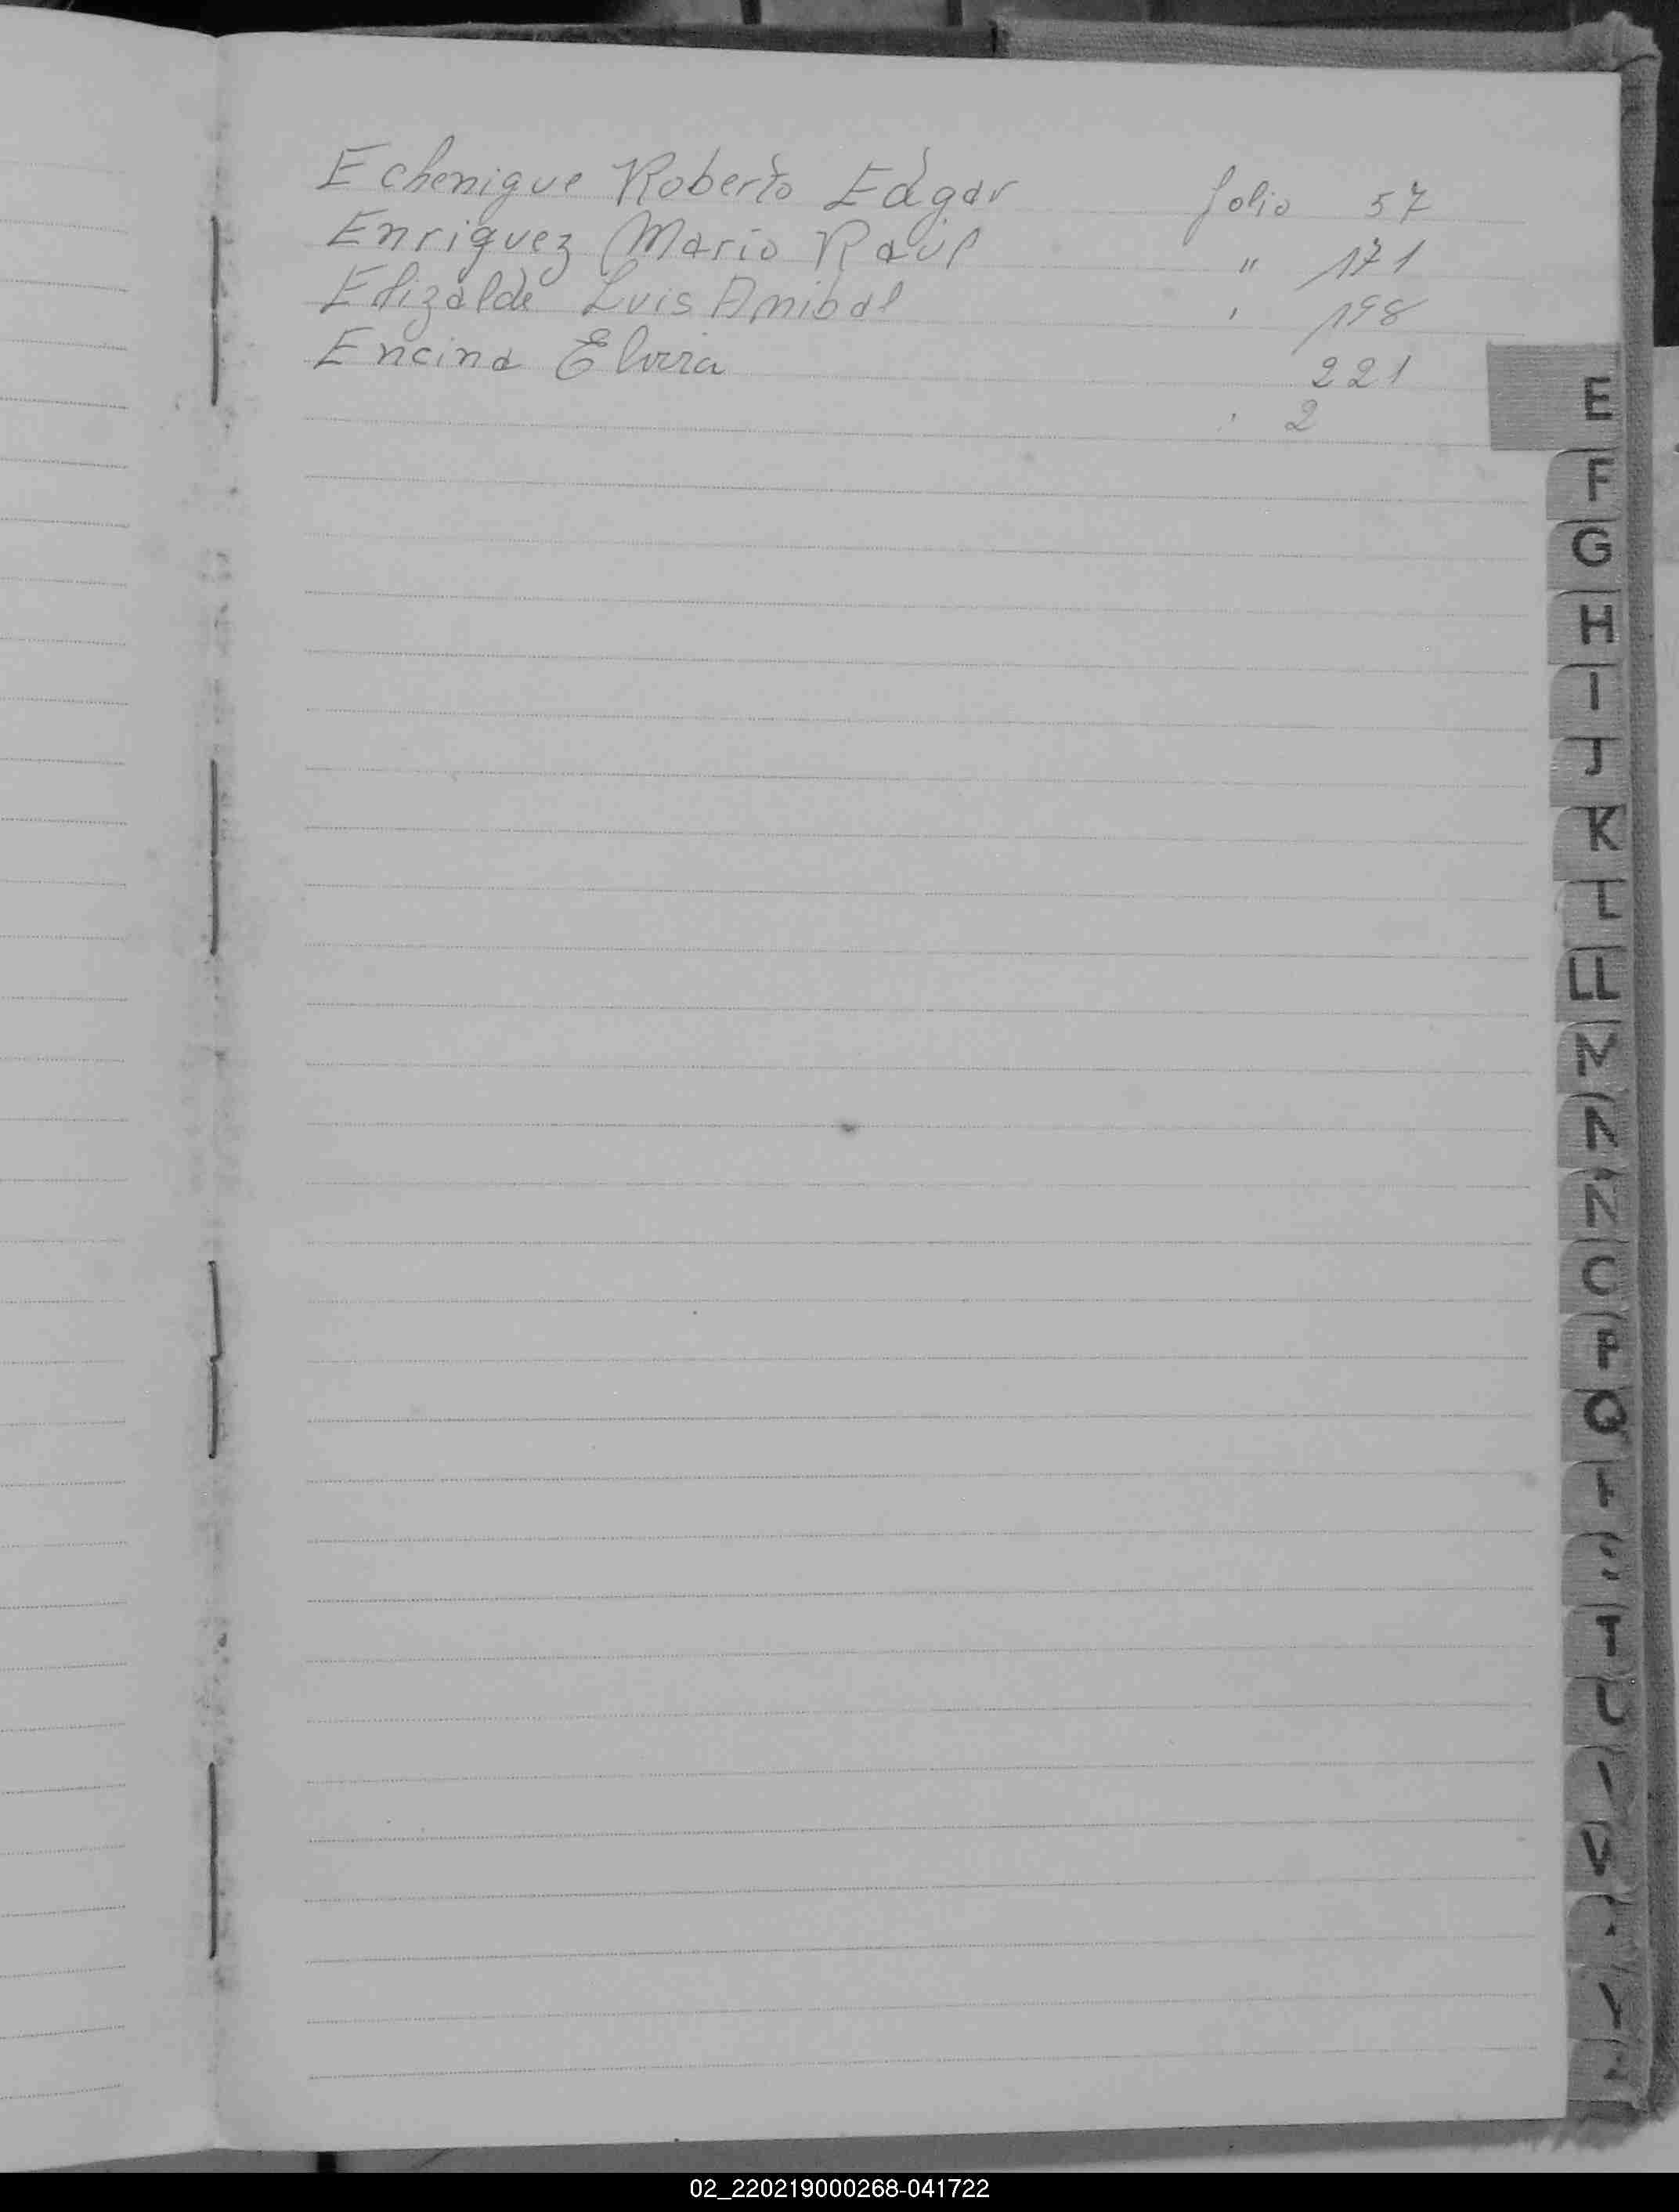 Echenique Roberto Edgar folio 57
Enriquez Mario Raúl " 171
Elizalde Luis Anibal ' 198
Encina Elvira 221
' 2
E
F
G
H
I
J
K
L
LL
M
N
Ñ
O
P
Q
T
U
V
Y
02_220219000268-041722